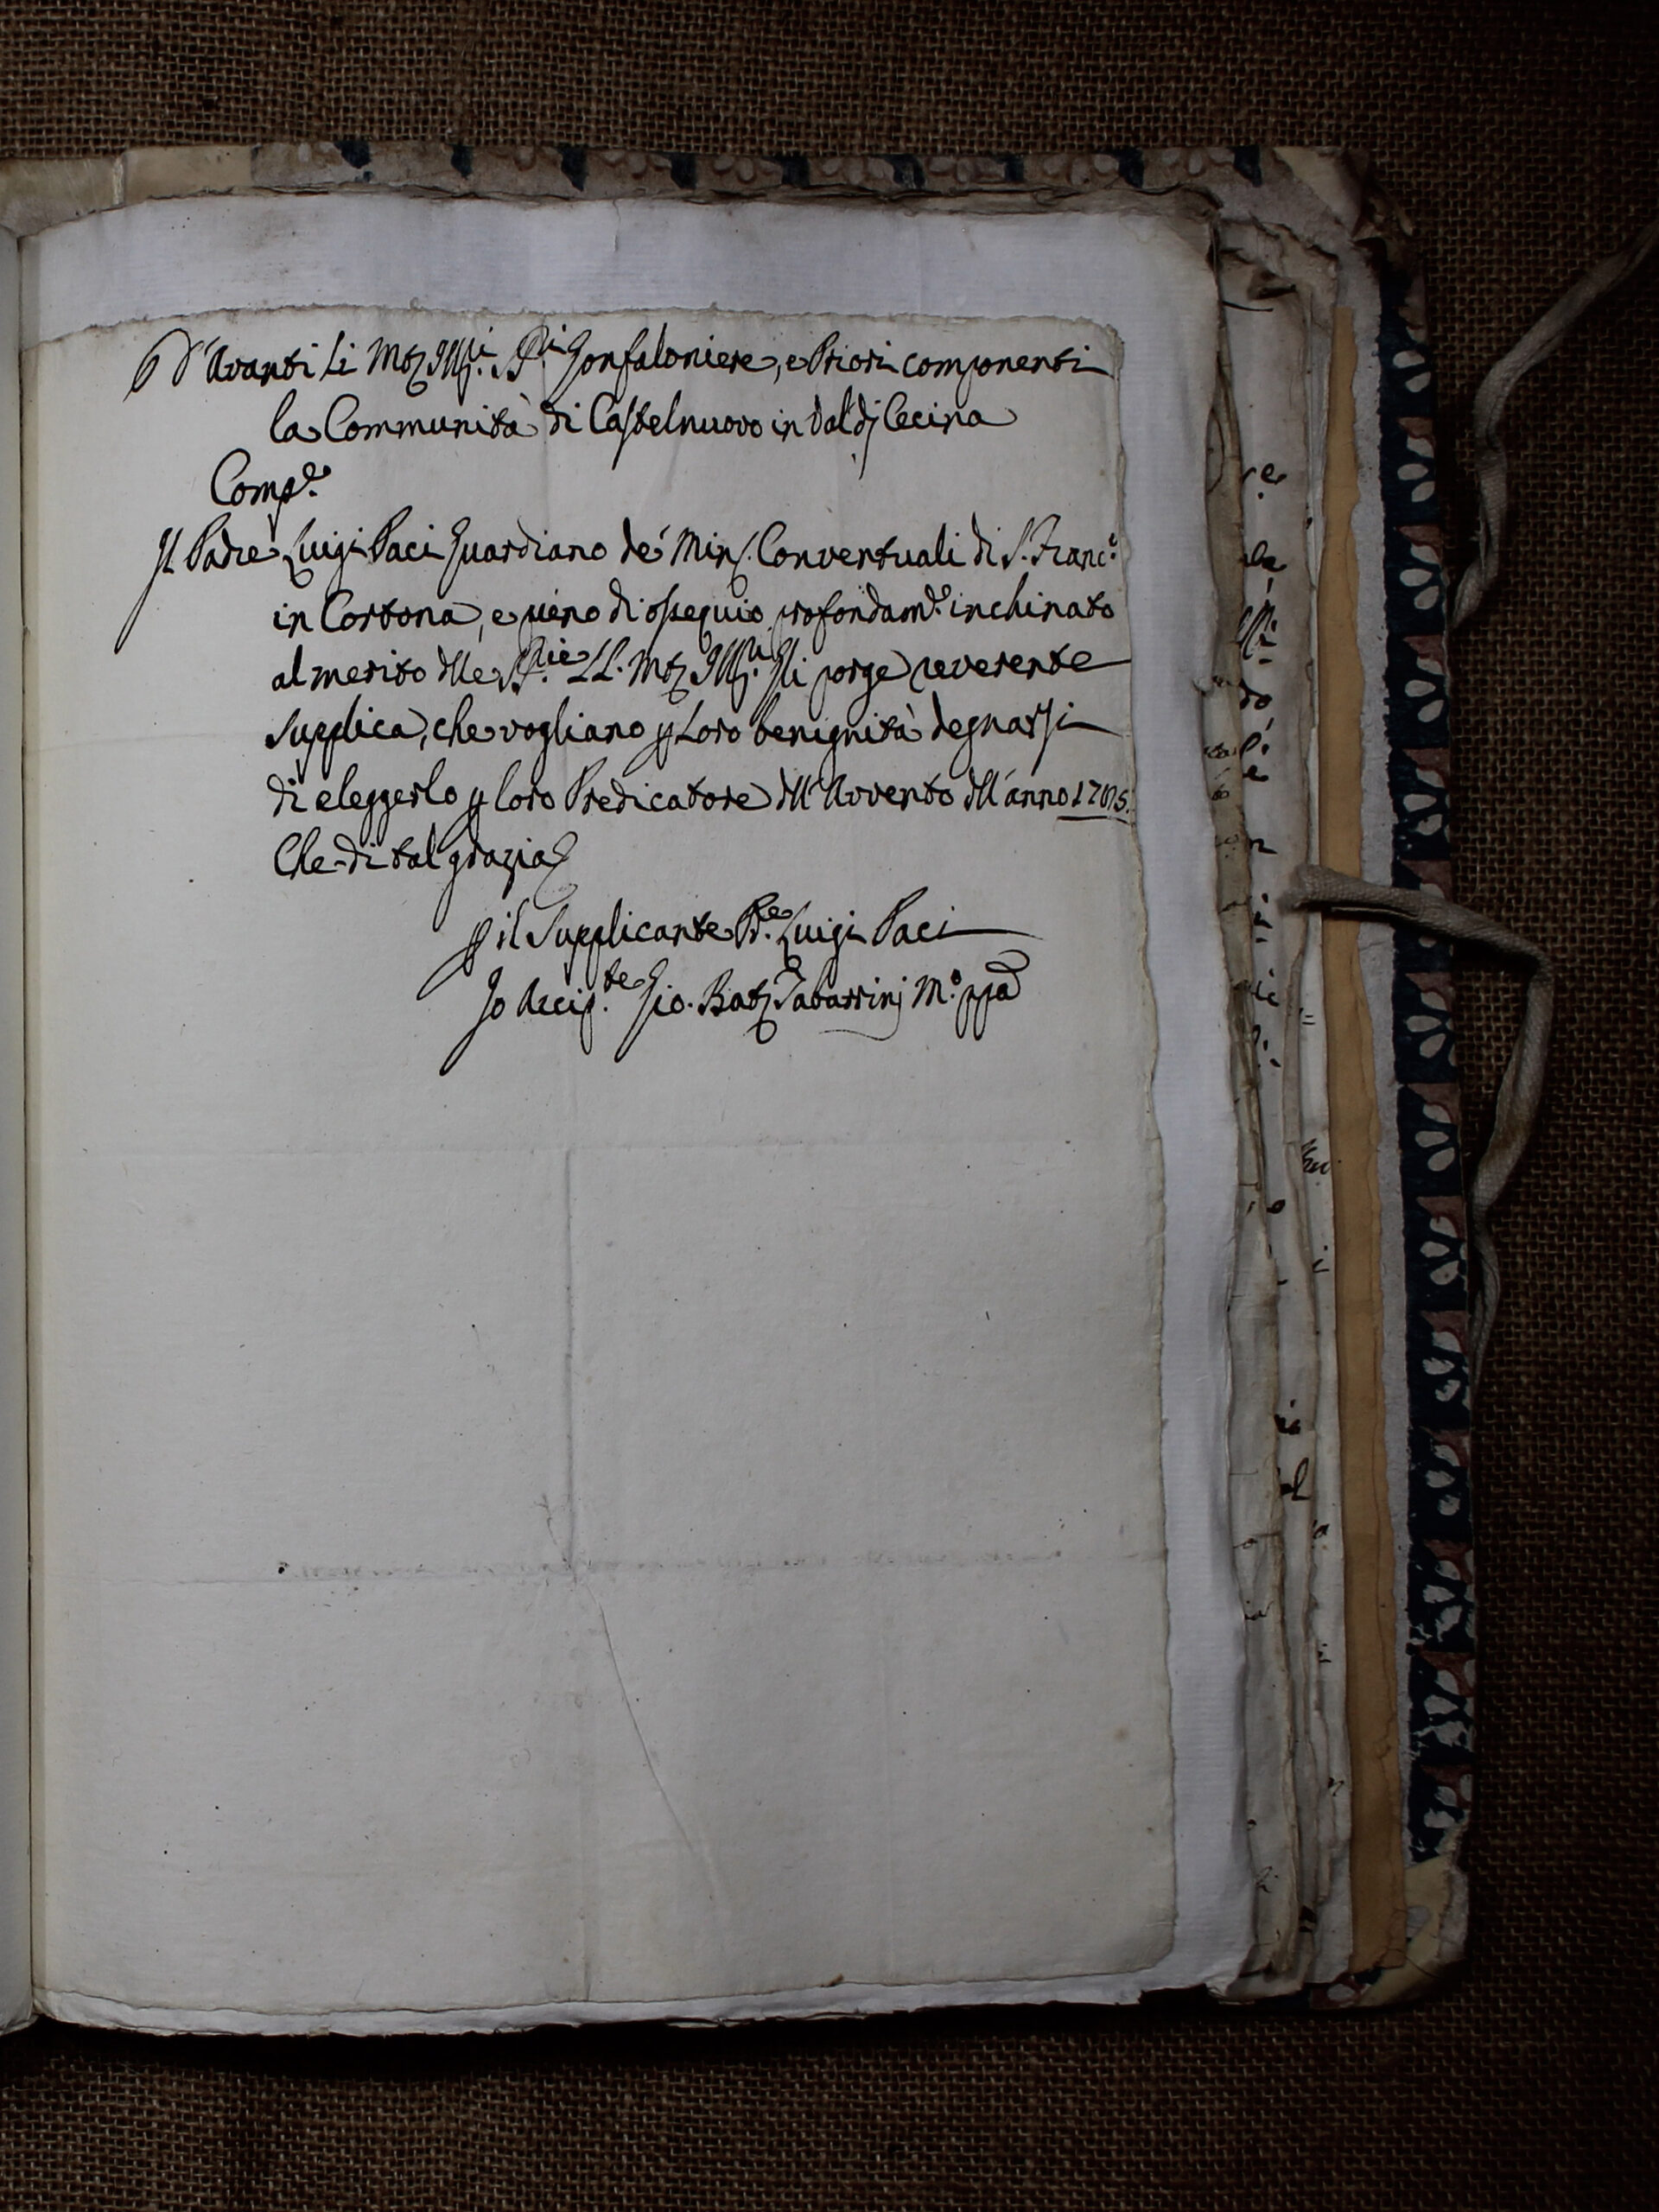 D'Avanti Li Mtz Illi. SSi. Gonfaloniere, e Priori componenti
la Communità di Castelnuovo in Val di Cecina
Compe.
Il Padre Luigi Paci Guardiano de' Min. Conventuali di S. Franco.
in Cortona, e pieno di ossequio profondamte. inchinato
al merito dlle SSrie. LL. Mtz Illri. Gli porge reverente
supplica, che vogliano p Loro benignità degnarsi
di eleggerlo p loro Predicatore dll'Avvento dll'anno
Che di tal grazia
p il Supplicante Pre. Luigi Paci
Io Arcipte. Gio. Batta Tabarrinj Mo. ppa